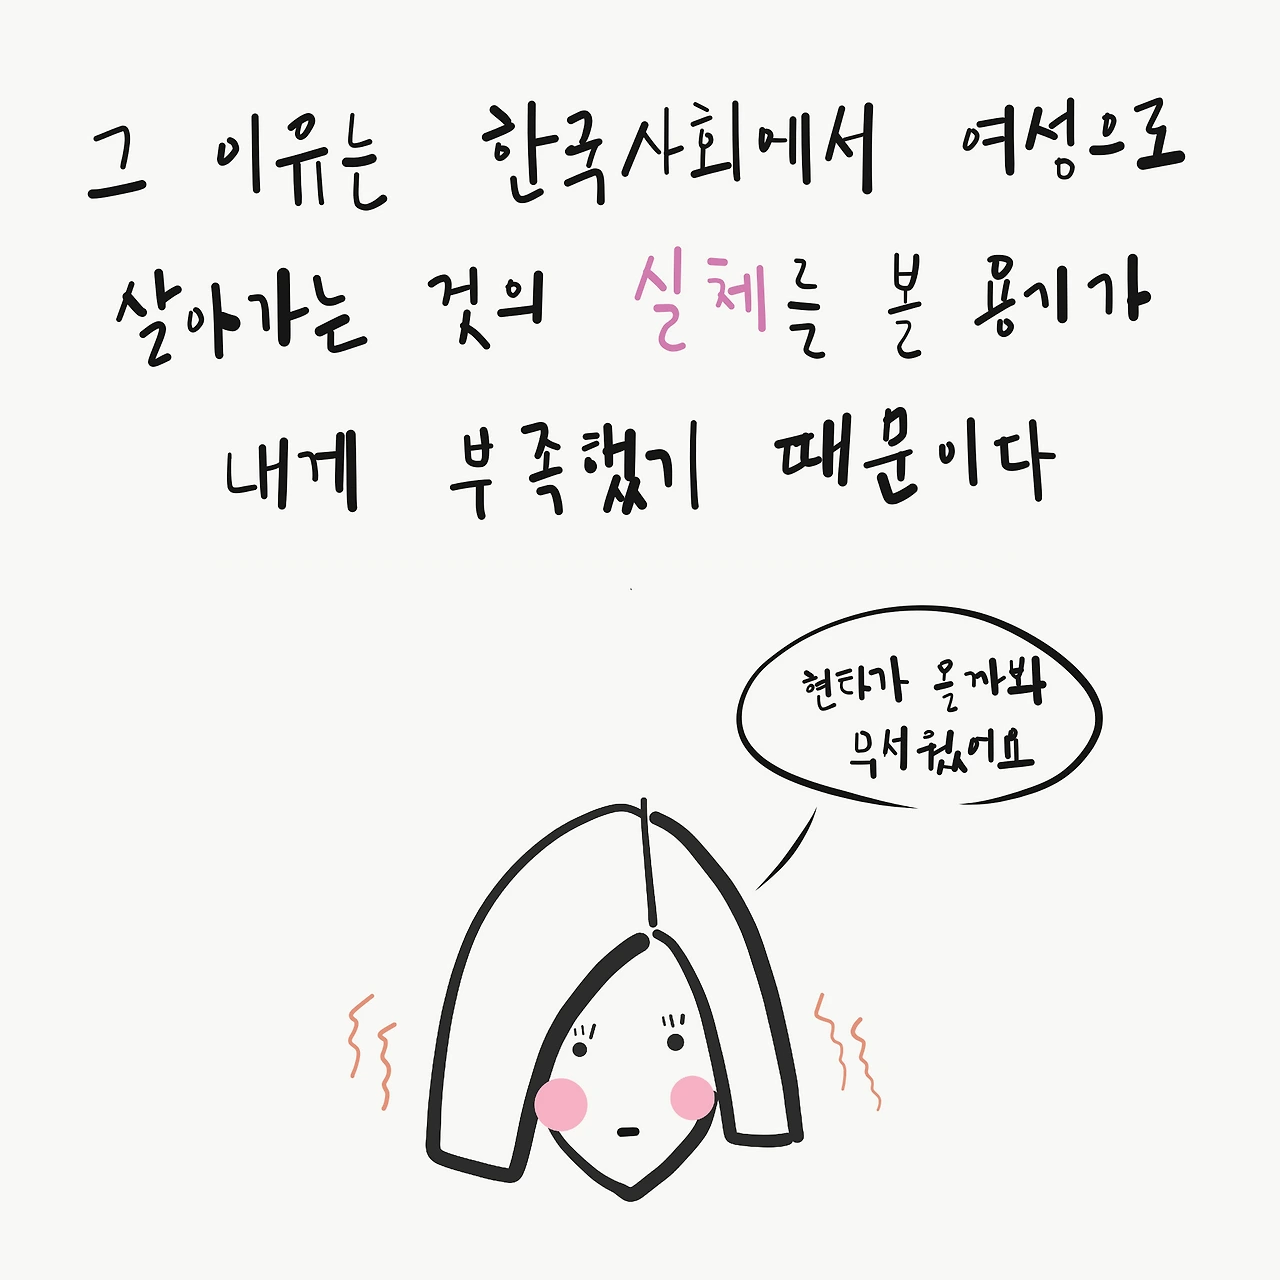 그 이유는 한국사회에서 여성으로
살아가는 것의 실체를 볼 용기가
내게 부족했기 때문이다
현타가 올까봐
무서웠어요